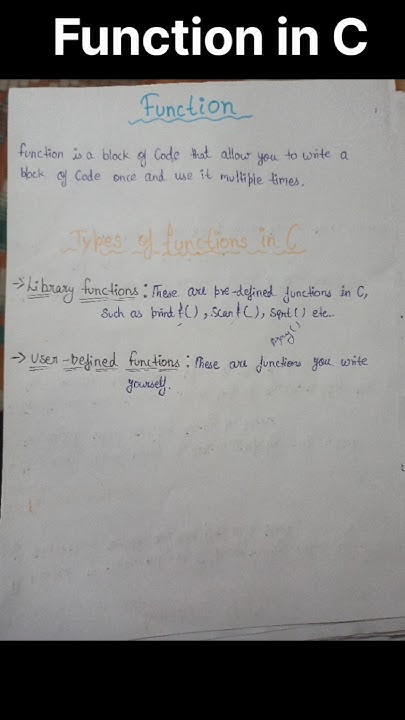 Function in C
Function
function is a block of Code that allow you to write a
block of Code once and use it multiple times.
Types of functions in C
→ Library functions : These are pre-defined functions in C,
Such as printf(), Scanf(), Sqrt() etc..
→ User-Defined functions : These are functions you write
yourself.